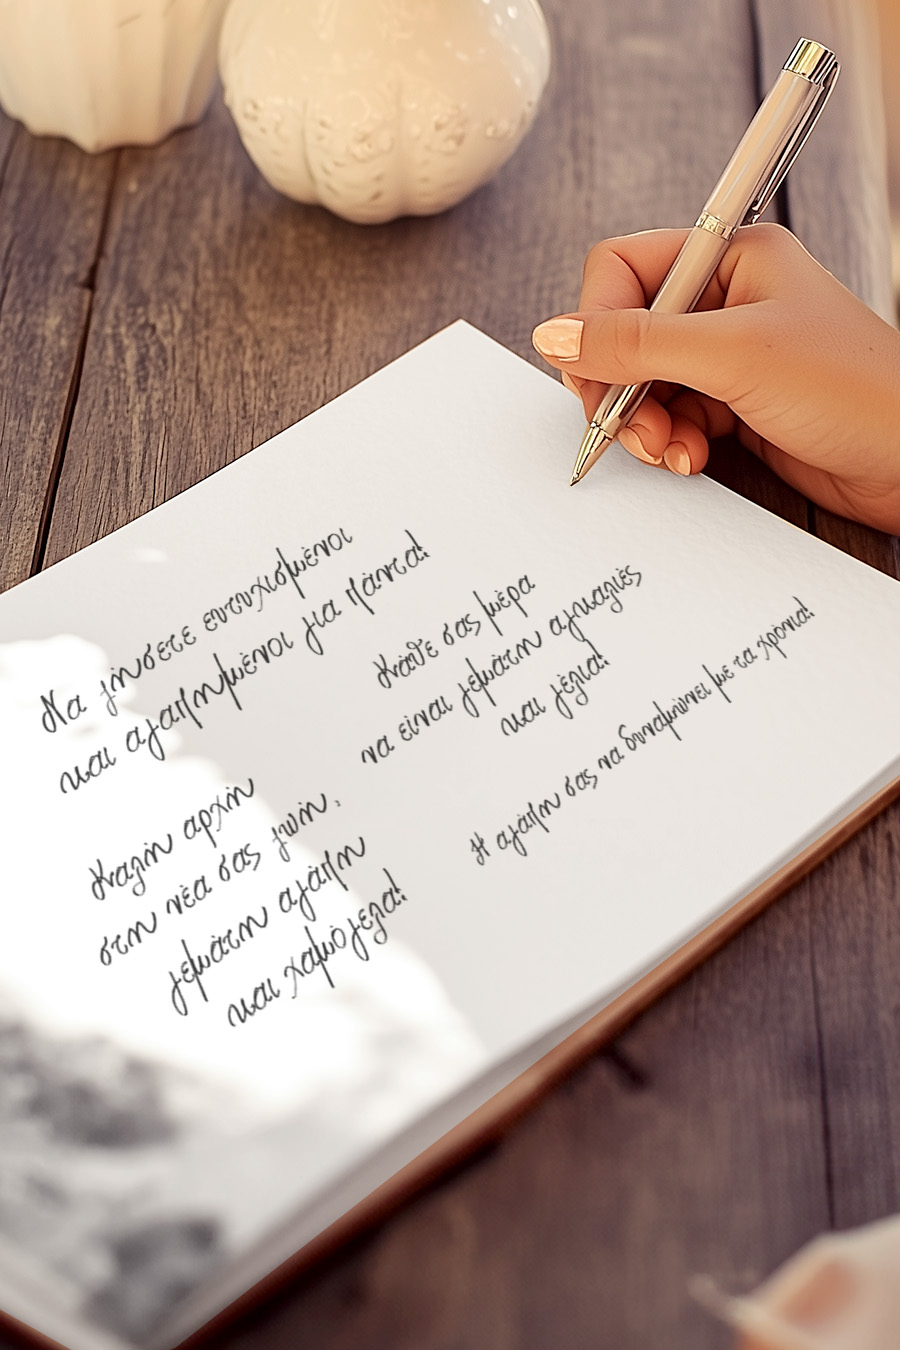 Να ζήσετε ευτυχισμένοι
και αγαπημένοι για πάντα!
Κάθε σας μέρα
να είναι γεμάτη αγκαλιές
και γέλια!
Καλή αρχή
στη νέα σας ζωή,
γεμάτη αγάπη
και χαμόγελα!
Η αγάπη σας να δυναμώνει με τα χρόνια!